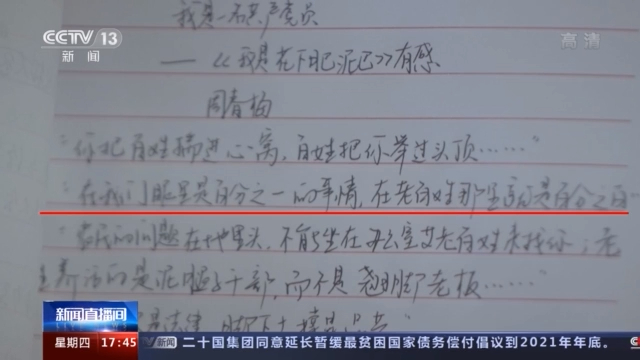 CCTV 13
新闻
高清
我是一名共产党员
——《我是花下肥泥巴》有感
周春梅
“你把百姓揣进心窝，百姓把你举过头顶……”
“在我们眼里是百分之一的事情，在老百姓那里就是百分之百”
“农民的问题在地里头，不能坐在办公室艾老百姓来找你；老
养活的是泥腿子干部，而不是翘脚老板……”
新闻直播间
星期四 17:45
二十国集团同意延长暂缓最贫困国家债务偿付倡议到2021年年底。